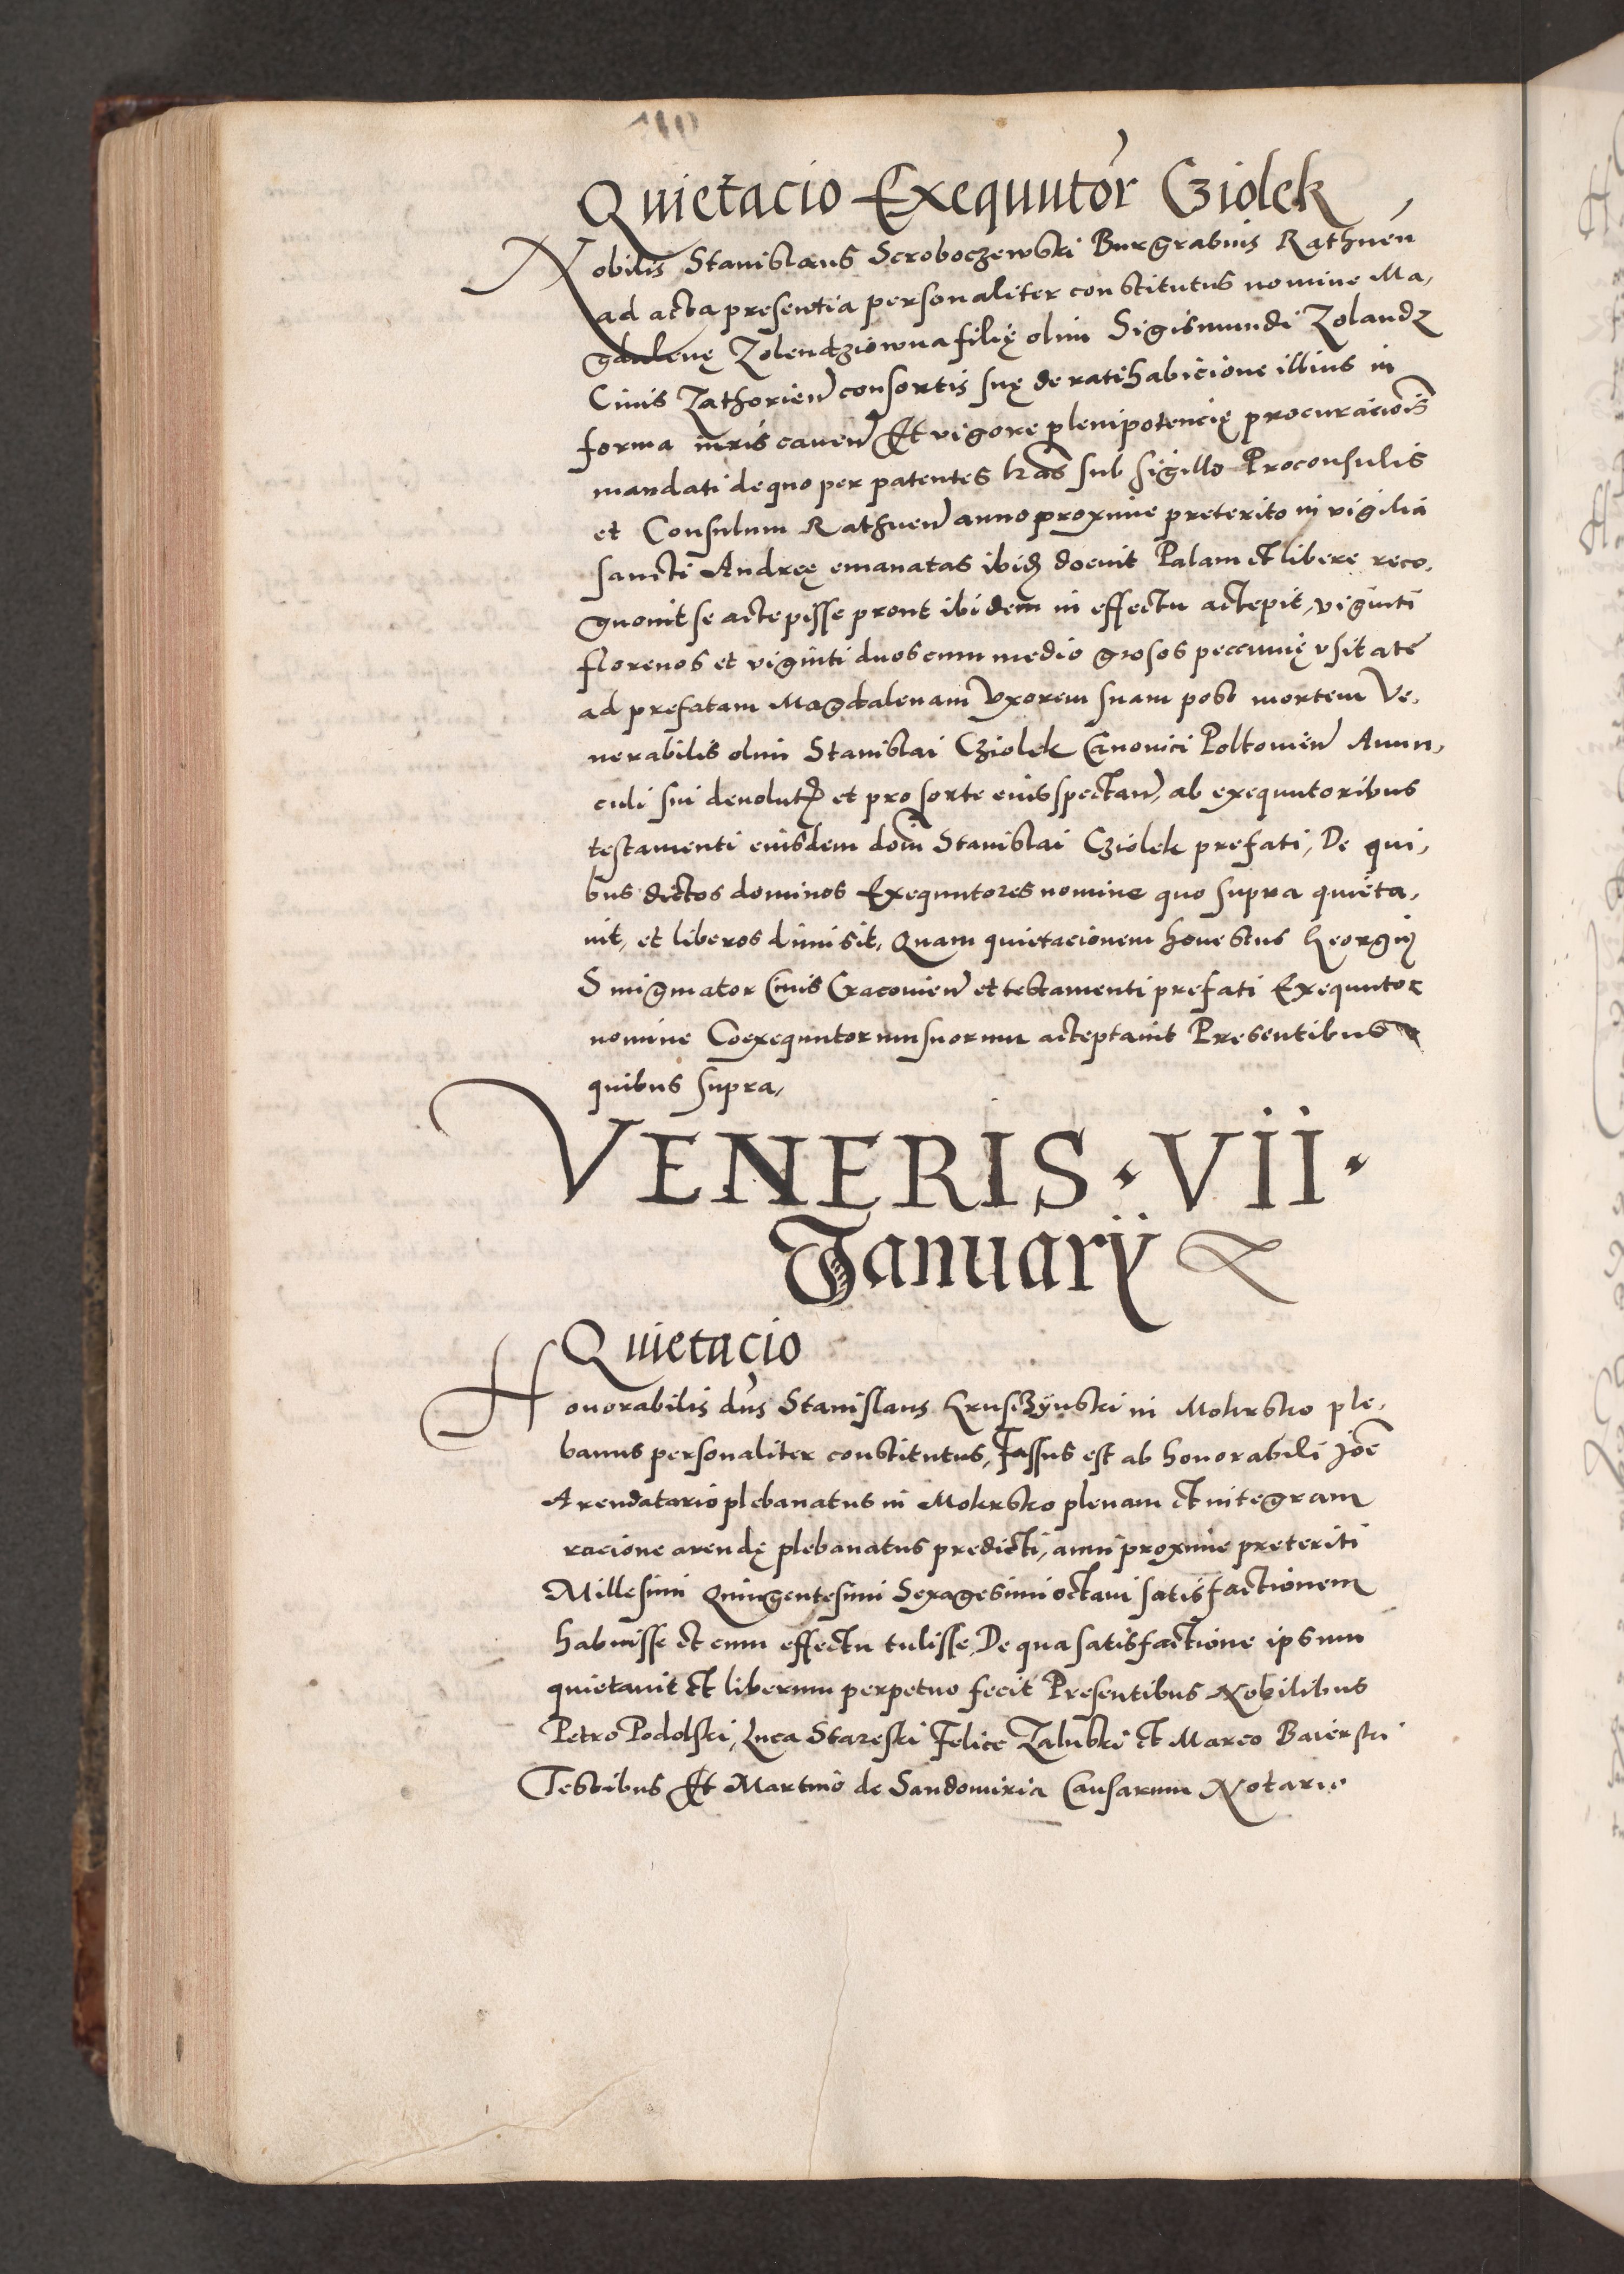 Quietacio Exequutor̃ Cziolek
Nobilis Stanislaus Scroboczewski Burgrabius Rathnen̄
ad acta presentia personaliter constitutus nomine Ma,
gdalenę Zolendziowna filię olim Sigismundi Zolandz
Ciuis Zathorien̄ consortis suę de ratihabicione illius in
forma iuris cauen̄ Et vigore plenipotencię procuraciōis
mandati de quo per patentes lr̄as sub sigillo Proconsulis
et Consulum Rathnen̄ anno proxime preterito in vigilia
sancti Andreę emanatas ibid̄ docuit Palam et libere reco,
gnouit se accepisse prout ibidem in effectu accepit, viginti
florenos et viginti duos cum medio grosos peccunię vsitatę
ad prefatam Magdalenam Vxorem suam post mortem Ve,
nerabilis olim Stanislai Cziolek Canonici Poltouien̄ Auun,
culi sui deuolut̄ et pro sorte eius spectan̄, ab exequutoribus
testamenti eiusdem dom̄ Stanislai Cziolek prefati, De qui,
bus dictos dominos Exequutores nomine quo supra quieta,
uit, et liberos dimisit, Quam quietacionem honestus Georgiȝ
Smigmator Ciuis Cracouien̄ et testamenti prefati Exequutor
nomine Coexequutorum suorum acceptauit Presentibus
quibus supra,
VENERIS · VII ·
Ianuarÿ
Quietacio
Honorabilis dn̄s Stanislaus Krusczÿnski in Mokrsko ple,
banus personaliter constitutus, Fassus est ab honorabili Joē
Arendatario plebanatus in Mokrsko plenam et integram
racione arendę plebanatus predicti, anni proxime preteriti
Millesimi Quingentesimi Sexagesimi octaui satisfactionem
habuisse et cum effectu tulisse, De qua satisfactione ipsum
quietauit et liberum perpetuo fecit Presentibus Nobilibus
Petro Podolski, Luca Stareski Felice Zaluski et Marco Baierski
Testibus Et Martino de Sandomiria Causarum Notario